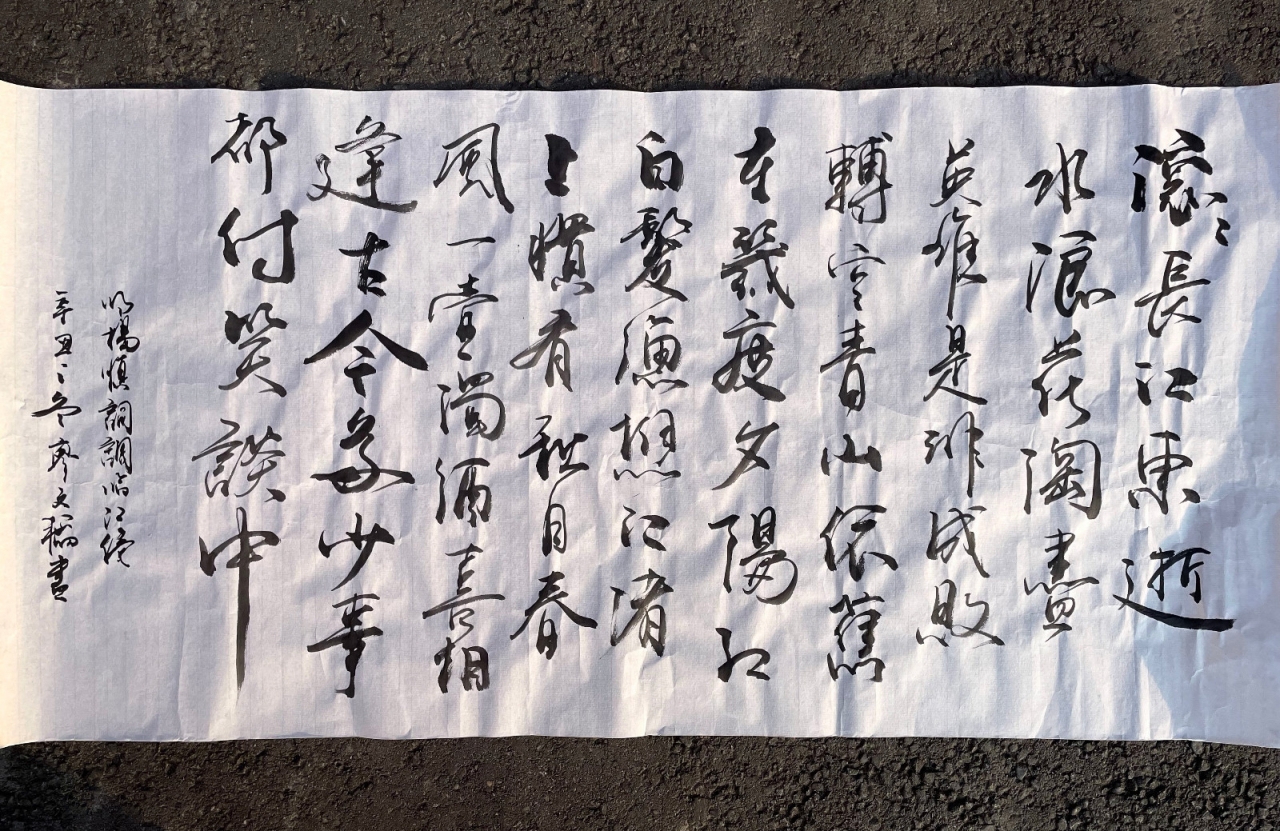 滾〻長江東逝
水浪花淘盡
英雄是非成敗
轉空青山依舊
在幾度夕陽紅
白髮漁樵江渚
上慣看秋月春
風一壺濁酒喜相
逢古今多少事
都付笑談中
明楊慎詞調臨江僊
辛丑〻冬廖文㮋書